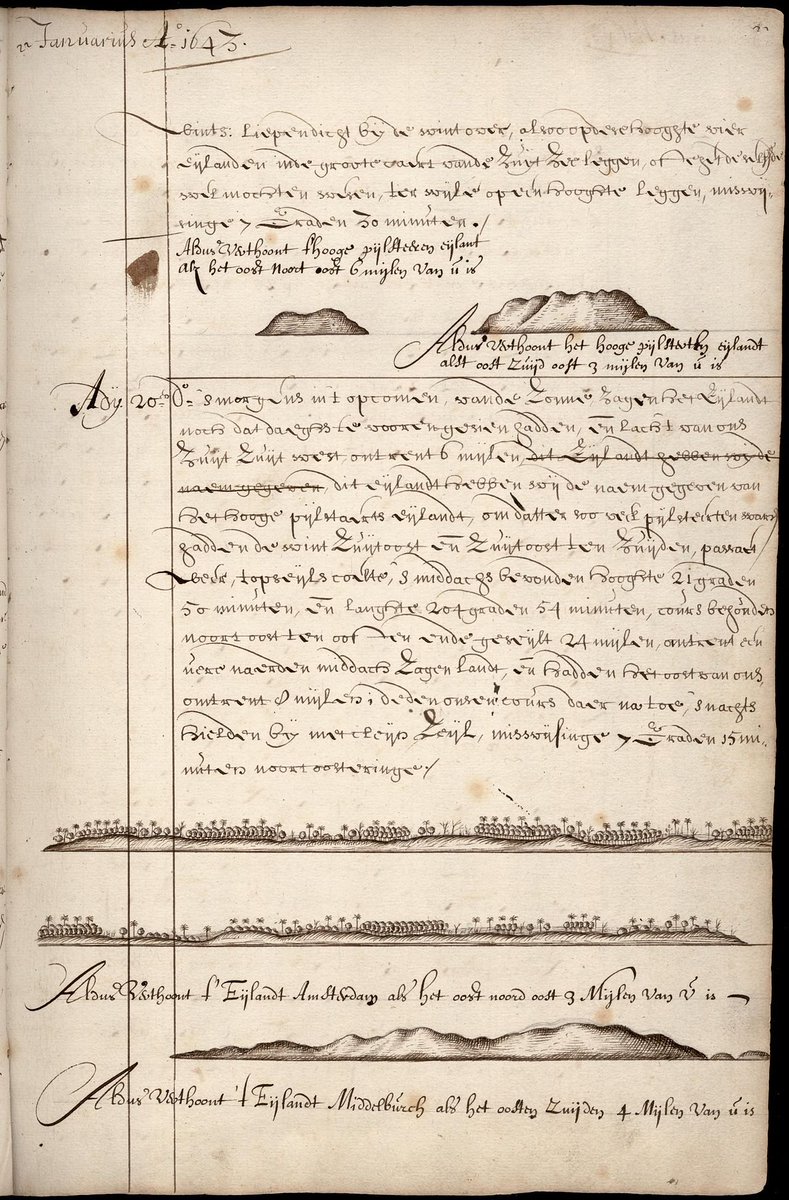 Januarius A:o 1643.
vints: liepen dicht bij de wint over, alsoo op dese hooghte vier
Eijlanden inde groote caert vande Zuijt Zee leggen, of dezelde
wel mochten wesen, ter wijle op een hooghte leggen, miswij-
singe 7 Graden 30 minuten./
Aldus Verthoont 't hooge pijlsteerten eijlant
als het oost noort oost 6 mijlen van ú is
Aldus Verthoont het hooge pijlsteerten eijlandt
alst oost zuijd oost 3 mijlen van ú is
Adij 20:en D:o 's morgens int opcomen, vande Zonne zagen het Eijlandt
noch dat daeghs te vooren gesien hadden, en lach't van ons
Zuijt Zuijt west ontrent 6 mijlen, dit Eijlandt hebben wij de
naem gegeven, dit eijlandt hebben wij de naem gegeven van
het hooge pijlstaerts eijlandt, om datter soo veel pijlsteerten waren
hadden de wint Zuijtoost en Zuijtoost ten Zuijden, passaet
weer, topseijls coelte, 's middachs bevonden hooghte 21 graden
50 minúten, en langhte 204 graden 54 minúten, coúrs behoúden
noort oost ten oosten ende geseijlt 24 mijlen, ontrent een
uere naer den middach zagen landt, en hadden het oost van ons
ontrent 8 mijlen; deden onsen coúrs daer na toe, 's nachts
hielden bij met cleijn Zeijl, miswijsinge 7 Graden 15 mi-
núten noort oosteringe./
Aldus Verthoont 't Eijlandt Amsterdam als het oost noord oost 3 Mijlen van ú is
Aldus Verthoont 't Eijlandt Middelbúrch als het oosten Zuijden 4 Mijlen van ú is